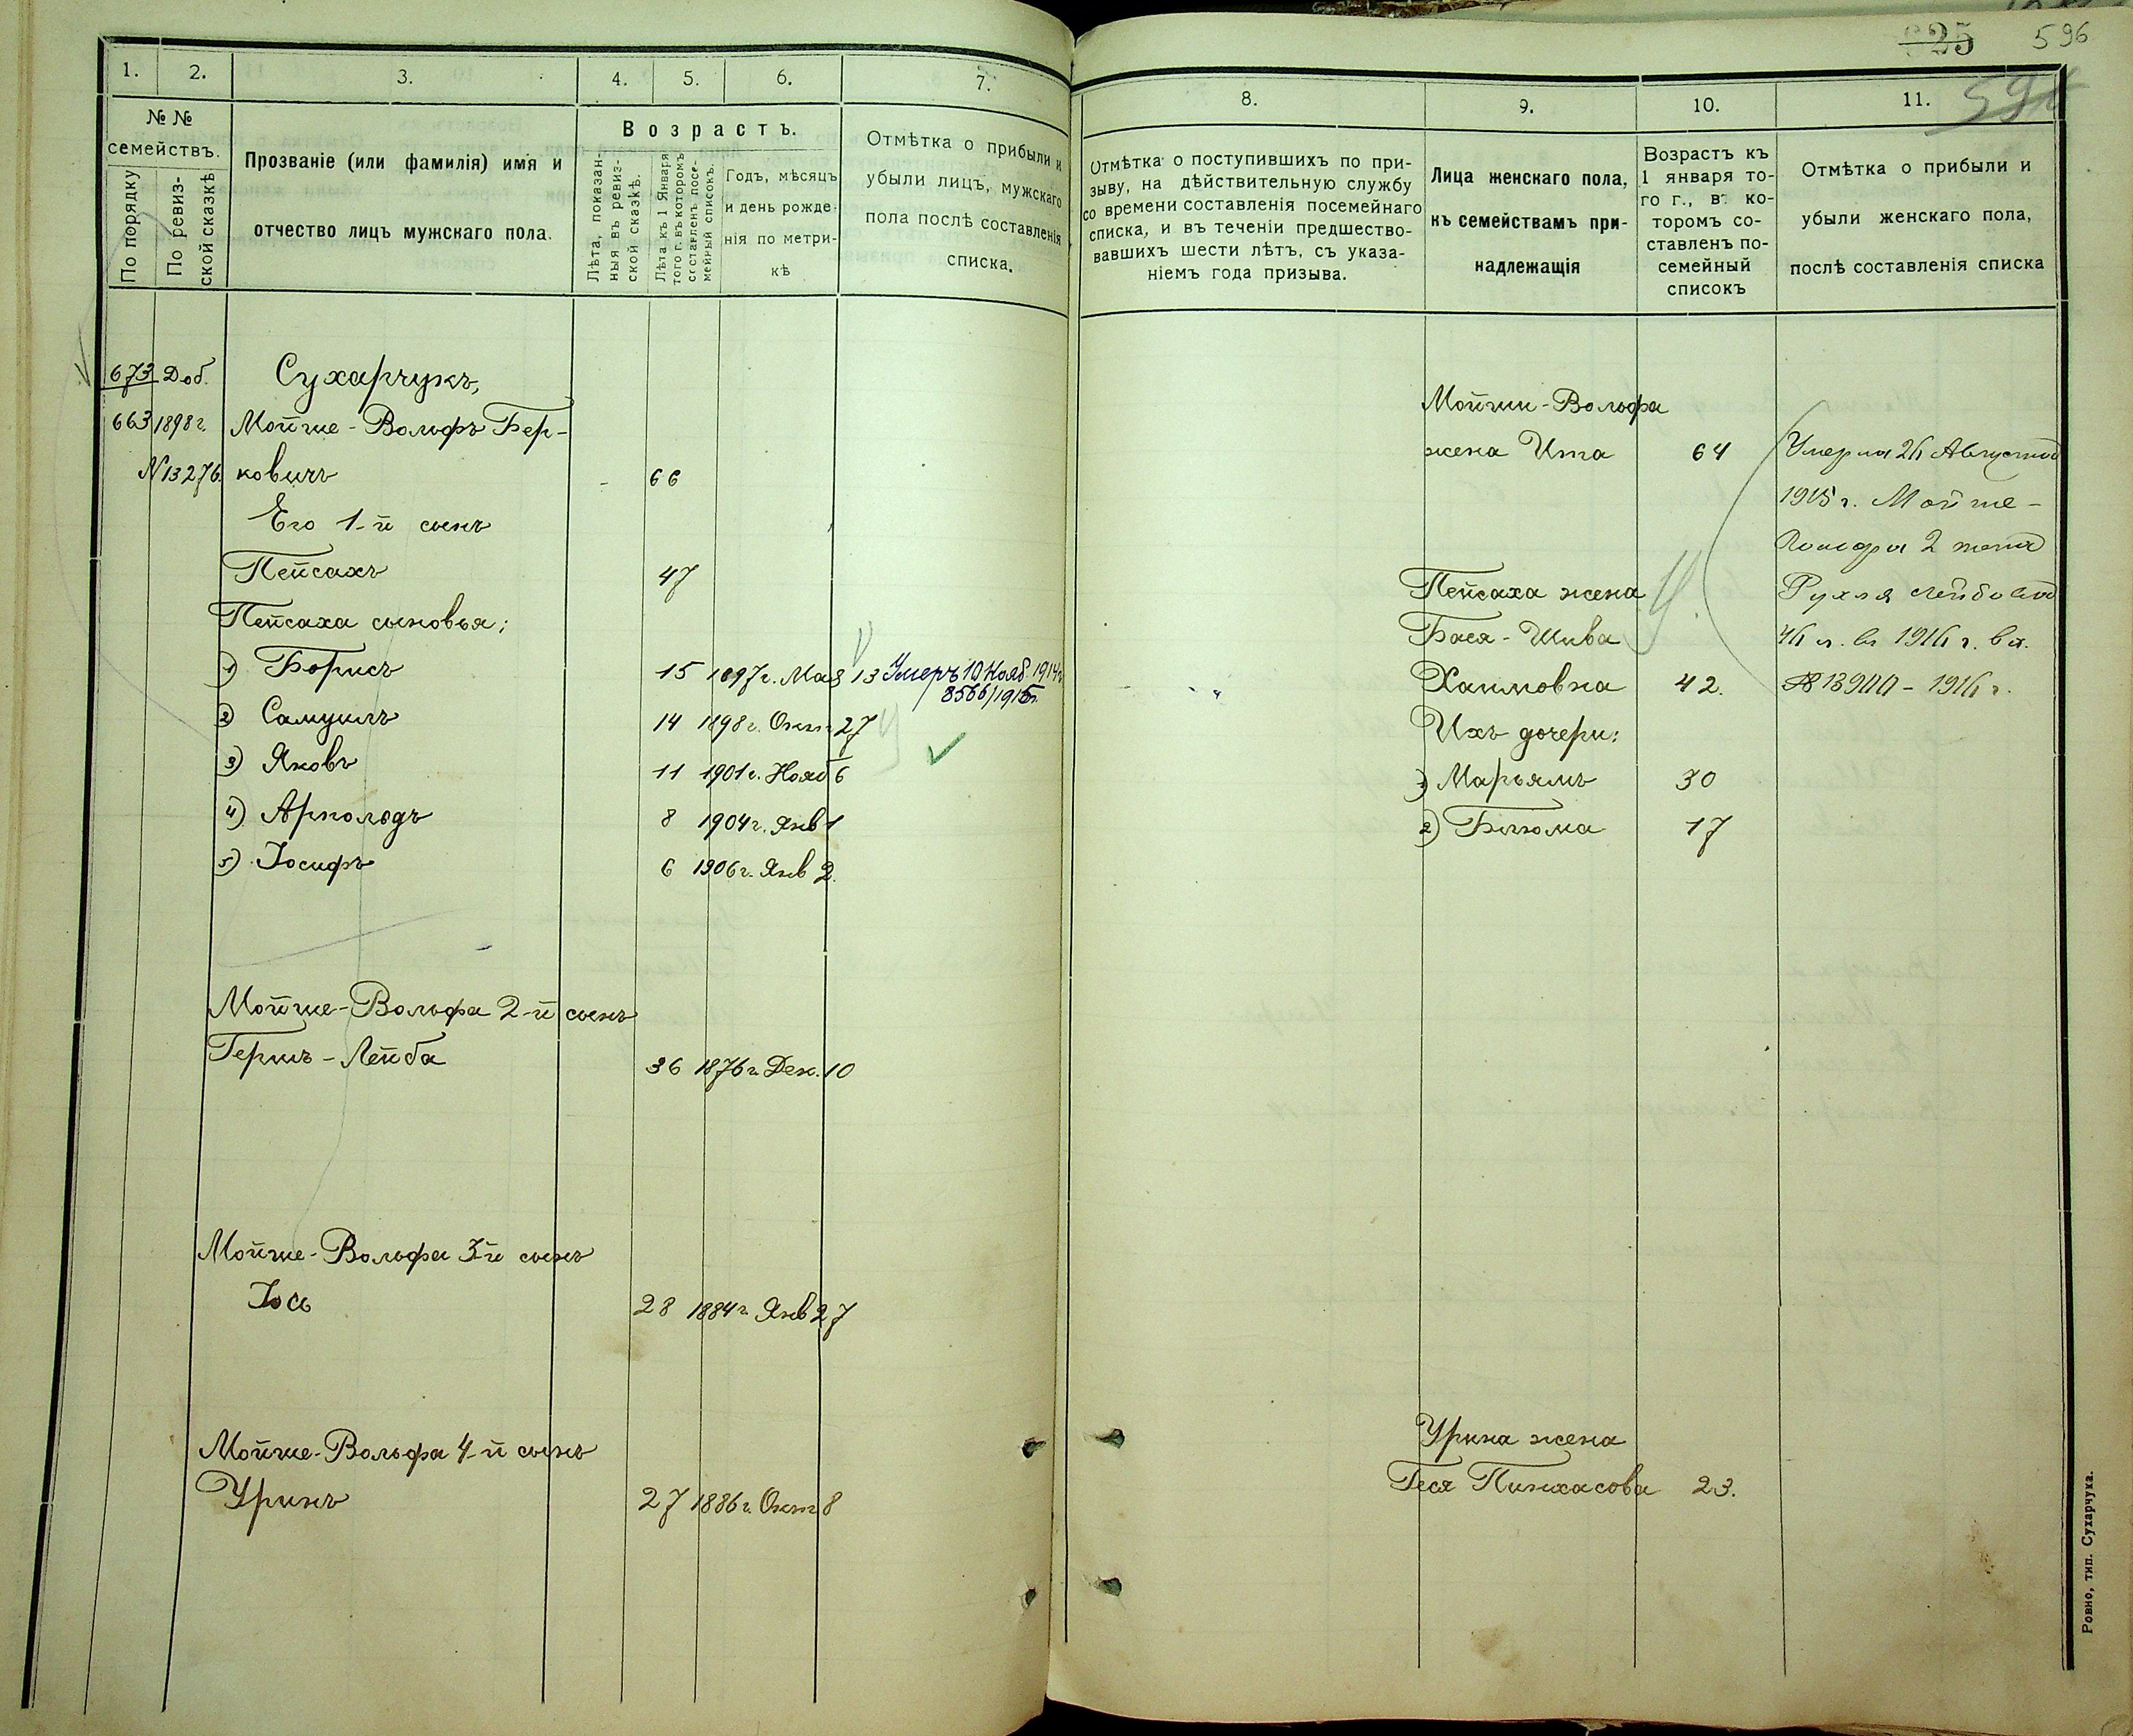 625 596
596
1. 2. 3. 4. 5. 6. 7.
№ №
семействъ.
По порядку
По ревиз-
ской сказкѣ
Прозваніе (или фамилія) имя и
отчество лицъ мужскаго пола.
Возрастъ.
Лѣта, показан-
ныя въ ревиз-
ской сказкѣ.
Лѣта къ 1 Января
того г. въ которомъ
составленъ посе-
мейный списокъ.
Годъ, мѣсяцъ
и день рожде-
нія по метри-
кѣ
Отмѣтка о прибыли и
убыли лицъ, мужскаго
пола послѣ составленія
списка.
673 Доб. Сухарчукъ,
663 1898 г. Мойше-Вольфъ Бер-
N 13276. ковичъ - 66
Его 1-й сынъ
Пейсахъ 47
Пейсаха сыновья:
1) Борисъ 15 1897 г. Мая 13 Умеръ 10 Нояб. 1914 г.
8566/1915 г.
2) Самуилъ 14 1898 г. Окт 27
3) Яковъ 11 1901 г. Нояб 6
4) Арнольдъ 8 1904 г. Янв 1
5) Іосифъ 6 1906 г. Янв 2.
Мойше-Вольфа 2-й сынъ
Гершъ-Лейба 36 1876 г. Дек. 10
Мойше-Вольфа 3-й сынъ
Іось 28 1884 г. Янв 27
Мойше-Вольфа 4-й сынъ
Уринъ 27 1886 г. Окт 8
8. 9. 10. 11.
Отмѣтка о поступившихъ по при-
зыву, на дѣйствительную службу
со времени составленія посемейнаго
списка, и въ теченіи предшество-
вавшихъ шести лѣтъ, съ указа-
ніемъ года призыва.
Лица женскаго пола,
къ семействамъ при-
надлежащія
Возрастъ къ
1 января то-
го г., въ ко-
торомъ со-
ставленъ по-
семейный
списокъ
Отмѣтка о прибыли и
убыли женскаго пола,
послѣ составленія списка
Мойши-Вольфа
жена Ита 64 Умерла 26 Августа
1915 г. Мойше-
Вольфа 2 жена
Пейсаха жена Рухля Лейбова
Бася-Шива 46 л. въ 1916 г. вх.
Хаимовна 42. № 13900 - 1916 г.
Ихъ дочери:
1) Марьямъ 30
2) Блюма 17
Урина жена
Геся Пинхасова 23.
Ровно, тип. Сухарчука.